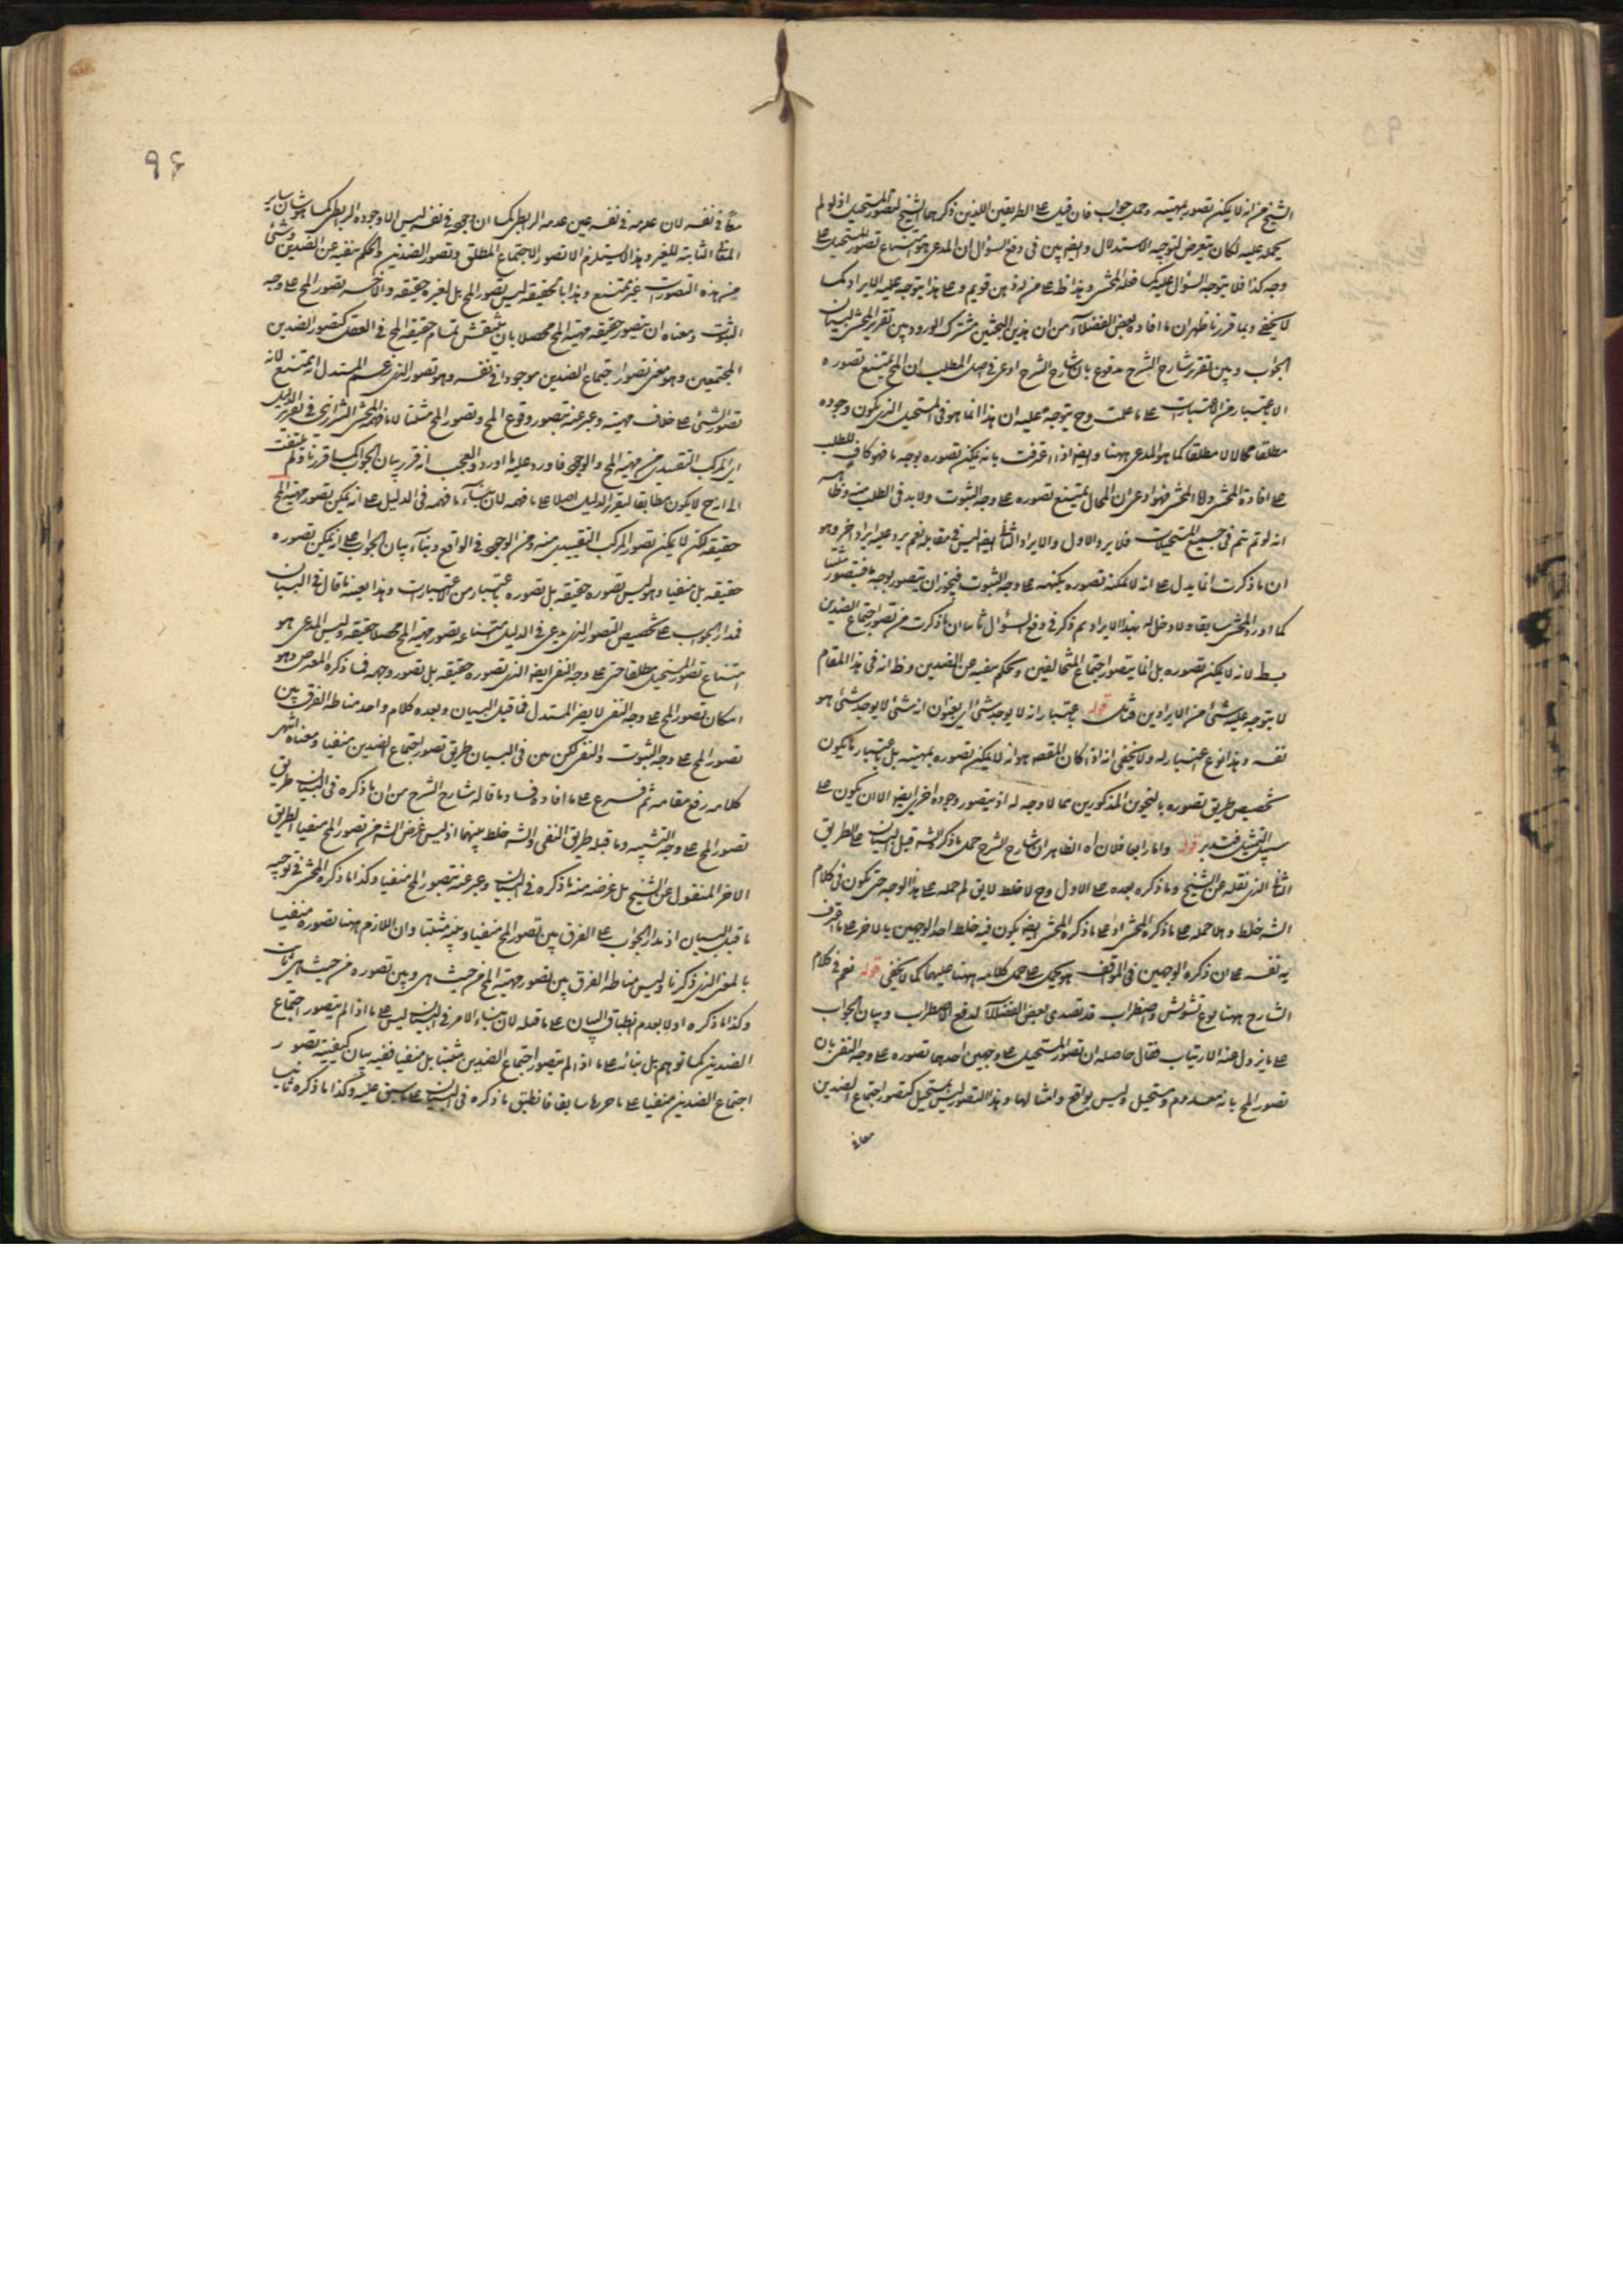 الشيخ من انه لا يمكن تصور بمهيته وحمل جواب فان قيل على الطريقين اللذين ذكرهما الشيخ لتصور المستحيل اذ لو لم
يحمل عليه لكان تعرض لتوجيه الاستدلال وايضا بين في دفع السؤال ان المدعى هو امتناع تصور المستحيل على
وجه كذا فلا يتوجه السؤال عليه كما فعله المحشى وهذا ظ على من له ذهن قويم وعلى هذا يتوجه عليه الايراد كما
لا يخفى وبما قررنا ظهر ان ما افاده بعض الفضلاء من ان هذين البحثين مشترك الورود بين تقرير المحشى لبيان
الجواب وبين تقرير شارح الشرح مدفوع بان شارح الشرح ادعى في اصل المطلب ان المح يمتنع تصوره
الا باعتبار من الاعتبارات على ما علمت وح يتوجه عليه ان هذا انما هو في المستحيل الذي يكون وجوده
مطلقا محالا لا مطلقا كما هو المدعى ههنا وايضا اذا اعترفت بانه يمكن تصوره بوجه ما فهو كاف للطلب
على افادة المحشى واما المحشى فهو ادعى ان المحال يمتنع تصوره على وجه الثبوت ولا بد في الطلب منه وظاهر
انه لو تم تم في جميع المستحيلات فلا يرد الاول والايراد الثاني ايضا ليس في مقابله نعم يرد عليه ايراد اخر وهو
ان ما ذكرت انما يدل على انه لا يمكنه تصوره بكنهه على وجه الثبوت فيجوز ان يتصور بوجه ما فيتصور مثبتا
كما اورد المحشى سابقا ولا دخل له بهذا الايراد ثم ذكر في دفع السؤال ان ما ذكرت من تصور اجتماع الضدين
بط لانه لا يمكنه تصوره بل انما يتصور اجتماع المتخالفين ويحكم بنفيه عن الضدين وظ انه في هذا المقام
لا يتوجه عليه شئ من الايرادين فتأمل قوله باعتبار انه لا يوجد شئ اي بعنوان انه شئ لا يوجد شئ هو
نفسه وهذا نوع اعتبار له ولا يخفى انه اذا كان المقصد هو انه لا يمكن تصوره بمهيته بل باعتبار ما يكون
تخصيص طريق تصوره بالنحوين المذكورين مما لا وجه له اذ يتصور وجوه اخرى ايضا الا ان يكون على
سبيل التمثيل فتدبر قوله واما رابعا فلان اه الظاهر ان شارح الشرح حمل ما ذكره الشه قبل البيان على الطريق
الثاني الذي نقله عن الشيخ وما ذكره بعده على الاول وح لا خلط لا يق لم حمله على هذا الوجه حتى يكون في كلام
الشه خلط وهلا حمله على ما ذكره المحشى او على ما ذكره المحشى ايضا يكون فيه خلط احد الوجهين بالاخر على ما اعترف
به نفسه على ان ذكره الوجهين في المواقف هو يحمل على حمل كلامه ههنا عليهما كما لا يخفى قوله نعم في كلام
الشارح ههنا نوع تشويش واضطراب قد تصدى بعض الفضلاء لدفع الاضطراب وبيان الجواب
على ما يزول عنه الارتياب فقال حاصله ان تصور المستحيل على وجهين احدهما تصوره على وجه النفى بان
تصور المح بانه معدوم ومستحيل وليس بواقع وامثالها وهذا التصور ليس بمستحيل كتصور اجتماع الضدين
٩٦
معا في نفسه لان عدمه في نفسه عين عدمه الرابطي كما ان وجوده في نفسه ليس الا وجوده الرابطي كما هو شان سائر
المعاني الثابتة للغير وهذا لا يستلزم الا تصور الاجتماع المطلق وتصور الضدين والحكم بنفيه عن الضدين وشئ
من هذه التصورات غير ممتنع وهذا بالحقيقة ليس تصور المح بل لغيره حقيقة والاخر تصور المح على وجه
الثبوت ومعناه ان يتصور حقيقة مهية المح محصلا بان ينتقش تمام حقيقة المح في العقل كتصور الضدين
المجتمعين وهو معنى تصور اجتماع الضدين موجودا في نفسه وهو تصور الذي زعم المستدل انه يمتنع لانه
تصور الشئ على خلاف مهيته وعبر عنه بتصور وقوع المح وتصور المح مثبتا لا ما فهمه المحشى الشيرازي في تقرير الدليل
اي المركب التقييدي من مهية المح والوجود فاورد عليه ما اورد والعجب انه قرر بيان الجواب كما قررنا ولم يلتفت
الى انه ح لا يكون مطابقا لتقرير الدليل اصلا على ما فهمه لان بناء ما فهمه في الدليل على انه يمكن تصور مهية المح
حقيقة لكن لا يمكن تصور المركب التقييدي منه ومن الوجود في الواقع وبناء بيان الجواب على انه يمكن تصوره
حقيقة بل منفيا وهو ليس تصوره حقيقة بل تصوره باعتبار من الاعتبارات وهذا بعينه ما قال في البيان
فمدار الجواب على تخصيص التصور الذي يدعى في الدليل امتناعه بتصور مهية المح محصلا حقيقة وليس المدعى هو
امتناع تصور المستحيل مطلقا حتى على وجه النفى ايضا الذي تصوره حقيقة بل تصور وجهه فما ذكره المعترض وهو
امكان تصور المح على وجه النفى لا يضر المستدل فما قبل البيان وبعده كلام واحد مناطه الفرق بين
تصور المح على وجه الثبوت والنفى لكن بين في البيان طريق تصور اجتماع الضدين منفيا ومعناه انتهى
كلامه رفع مقامه ثم فرع على ما افاد وفسادها قاله شارح الشرح من ان ما ذكره في البيان طريق
تصور المح على وجه التشبيه وما قبله طريق النفى والشه خلط بينهما اذ ليس غرض الشه من تصور المح منفيا الطريق
الاخر المنقول عن الشيخ بل غرضه منه ما ذكره في البيان وعبر عنه بتصور المح منفيا وكذا ما ذكره المحشى في توجيه
ما قبل البيان اذ مدار الجواب على الفرق بين تصور المح منفيا وبينه مثبتا وان اللازم ههنا تصوره منفيا
بالمعنى الذي ذكرنا وليس مناطه الفرق بين تصور مهية المح من حيث هي وبين تصوره من حيث هي ثابت
وكذا ما ذكره اولا بعدم انطباق البيان على ما قبله لان بناء الامر في البيان ليس على ما اذا لم يتصور اجتماع
الضدين كما توهم بل بنائه على ما اذا لم يتصور اجتماع الضدين مثبتا بل منفيا ففيه بيان كيفية تصور
اجتماع الضدين منفيا على ما حررنا سابقا فانطبق ما ذكره في البيان على ما سبق عليه وكذا ما ذكره ثانيا